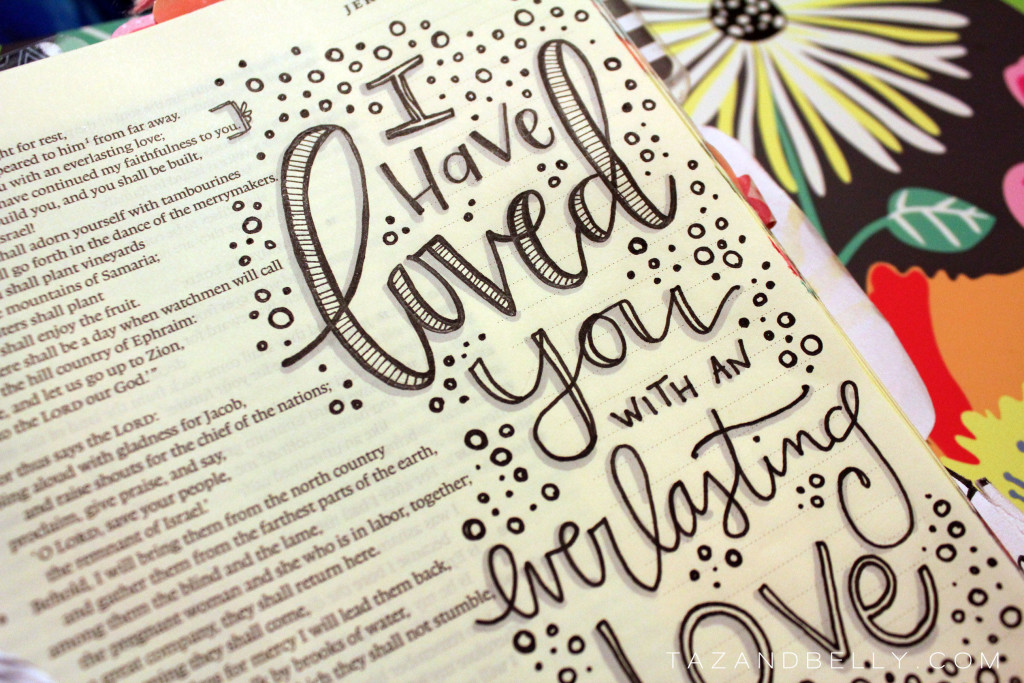 JER
ght for rest,
peared to him¹ from far away.
u with an everlasting love;
have continued my faithfulness to you.
uild you, and you shall be built,
srael!
hall adorn yourself with tambourines
ll go forth in the dance of the merrymakers.
shall plant vineyards
mountains of Samaria;
ters shall plant
shall enjoy the fruit.
ere shall be a day when watchmen will call
the hill country of Ephraim:
e, and let us go up to Zion,
o the LORD our God.’”
thus says the LORD:
ing aloud with gladness for Jacob,
and raise shouts for the chief of the nations;
proclaim, give praise, and say,
‘O LORD, save your people,
the remnant of Israel.’
Behold, I will bring them from the north country
and gather them from the farthest parts of the earth,
among them the blind and the lame,
the pregnant woman and she who is in labor, together;
great company, they shall return here.
they shall come,
for mercy I will lead them back,
by brooks of water,
they shall not stumble,
I
Have
loved
you
WITH AN
everlasting
love
TAZANDBELLY.COM